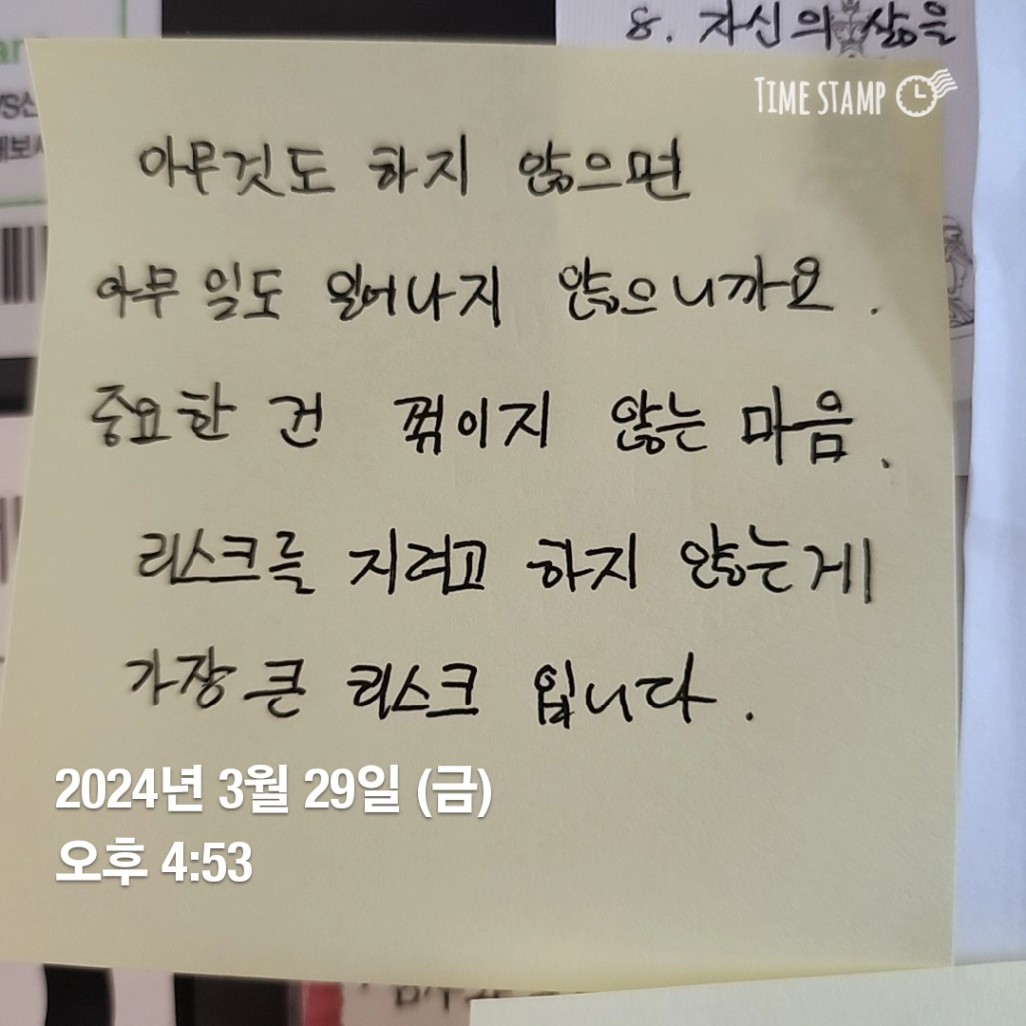 8. 자신의 삶을
TIME STAMP
아무것도 하지 않으면
아무 일도 일어나지 않으니까요.
중요한 건 꺾이지 않는 마음.
리스크를 지려고 하지 않는게
가장 큰 리스크 입니다.
2024년 3월 29일 (금)
오후 4:53